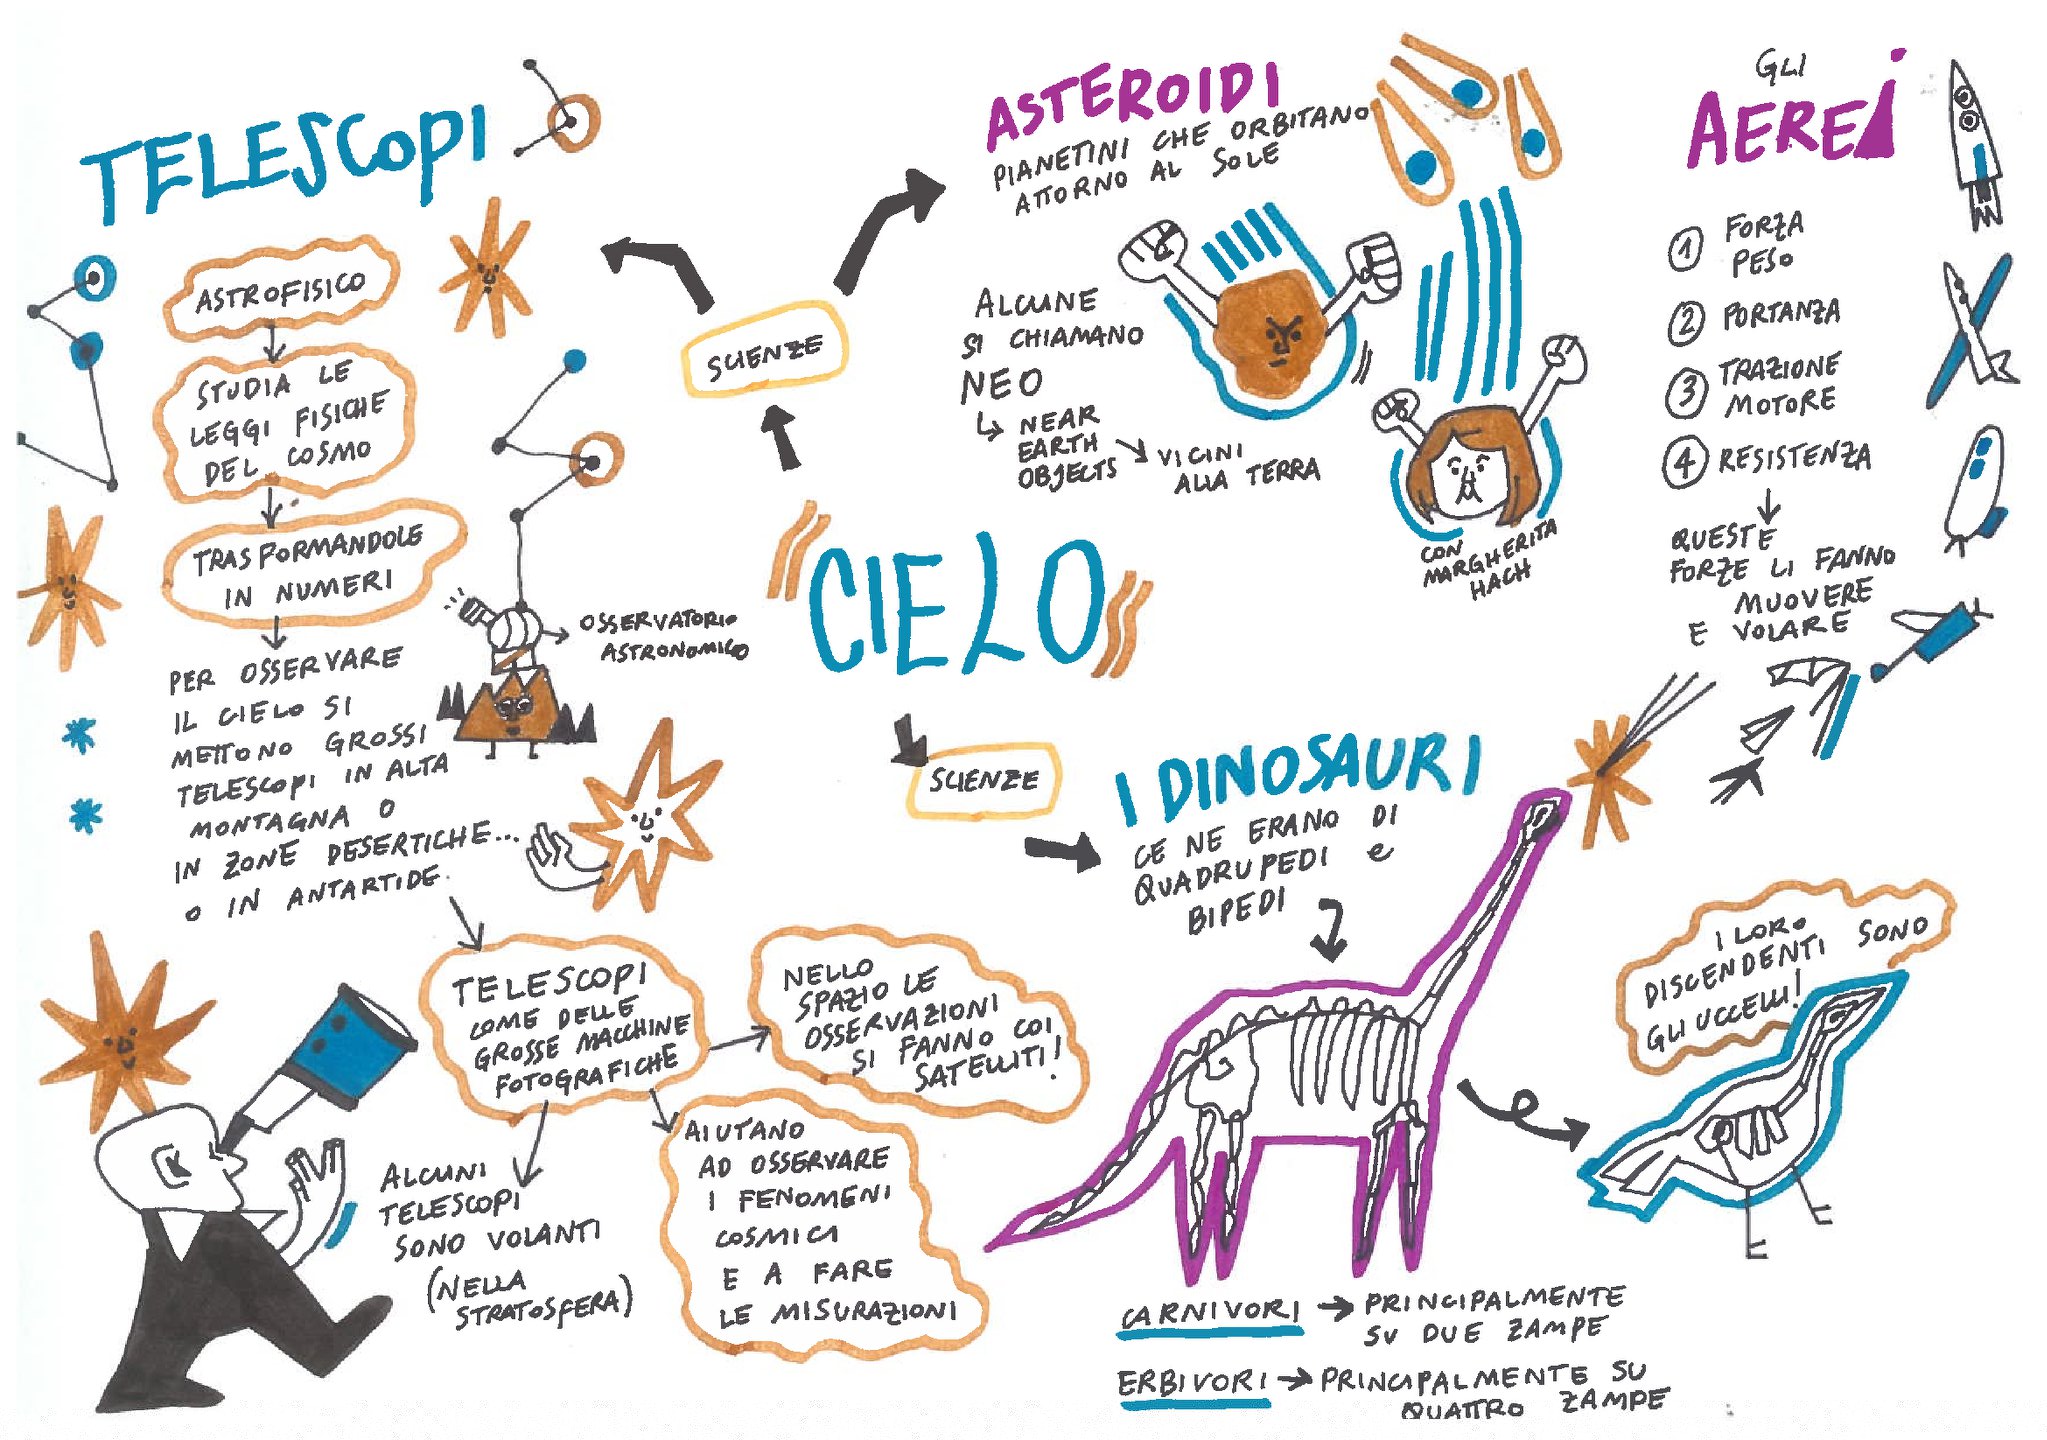 TELESCOPI
ASTROFISICO
STUDIA LE
LEGGI FISICHE
DEL COSMO
TRASFORMANDOLE
IN NUMERI
PER OSSERVARE
IL CIELO SI
METTONO GROSSI
TELESCOPI IN ALTA
MONTAGNA O
IN ZONE DESERTICHE...
O IN ANTARTIDE.
OSSERVATORIO
ASTRONOMICO
TELESCOPI
COME DELLE
GROSSE MACCHINE
FOTOGRAFICHE
NELLO
SPAZIO LE
OSSERVAZIONI
SI FANNO COI
SATELLITI!
AIUTANO
AD OSSERVARE
I FENOMENI
COSMICI
E A FARE
LE MISURAZIONI
ALCUNI
TELESCOPI
SONO VOLANTI
(NELLA
STRATOSFERA)
SCIENZE
CIELO
ASTEROIDI
PIANETINI CHE ORBITANO
ATTORNO AL SOLE
ALCUNE
SI CHIAMANO
NEO
NEAR
EARTH
OBJECTS
VICINI
ALLA TERRA
CON
MARGHERITA
HACH
GLI
AEREI
1 FORZA
PESO
2 PORTANZA
3 TRAZIONE
MOTORE
4 RESISTENZA
QUESTE
FORZE LI FANNO
MUOVERE
E VOLARE
SCIENZE
I DINOSAURI
CE NE ERANO DI
QUADRUPEDI e
BIPEDI
I LORO
DISCENDENTI SONO
GLI UCCELLI!
CARNIVORI → PRINCIPALMENTE
SU DUE ZAMPE
ERBIVORI → PRINCIPALMENTE SU
QUATTRO ZAMPE